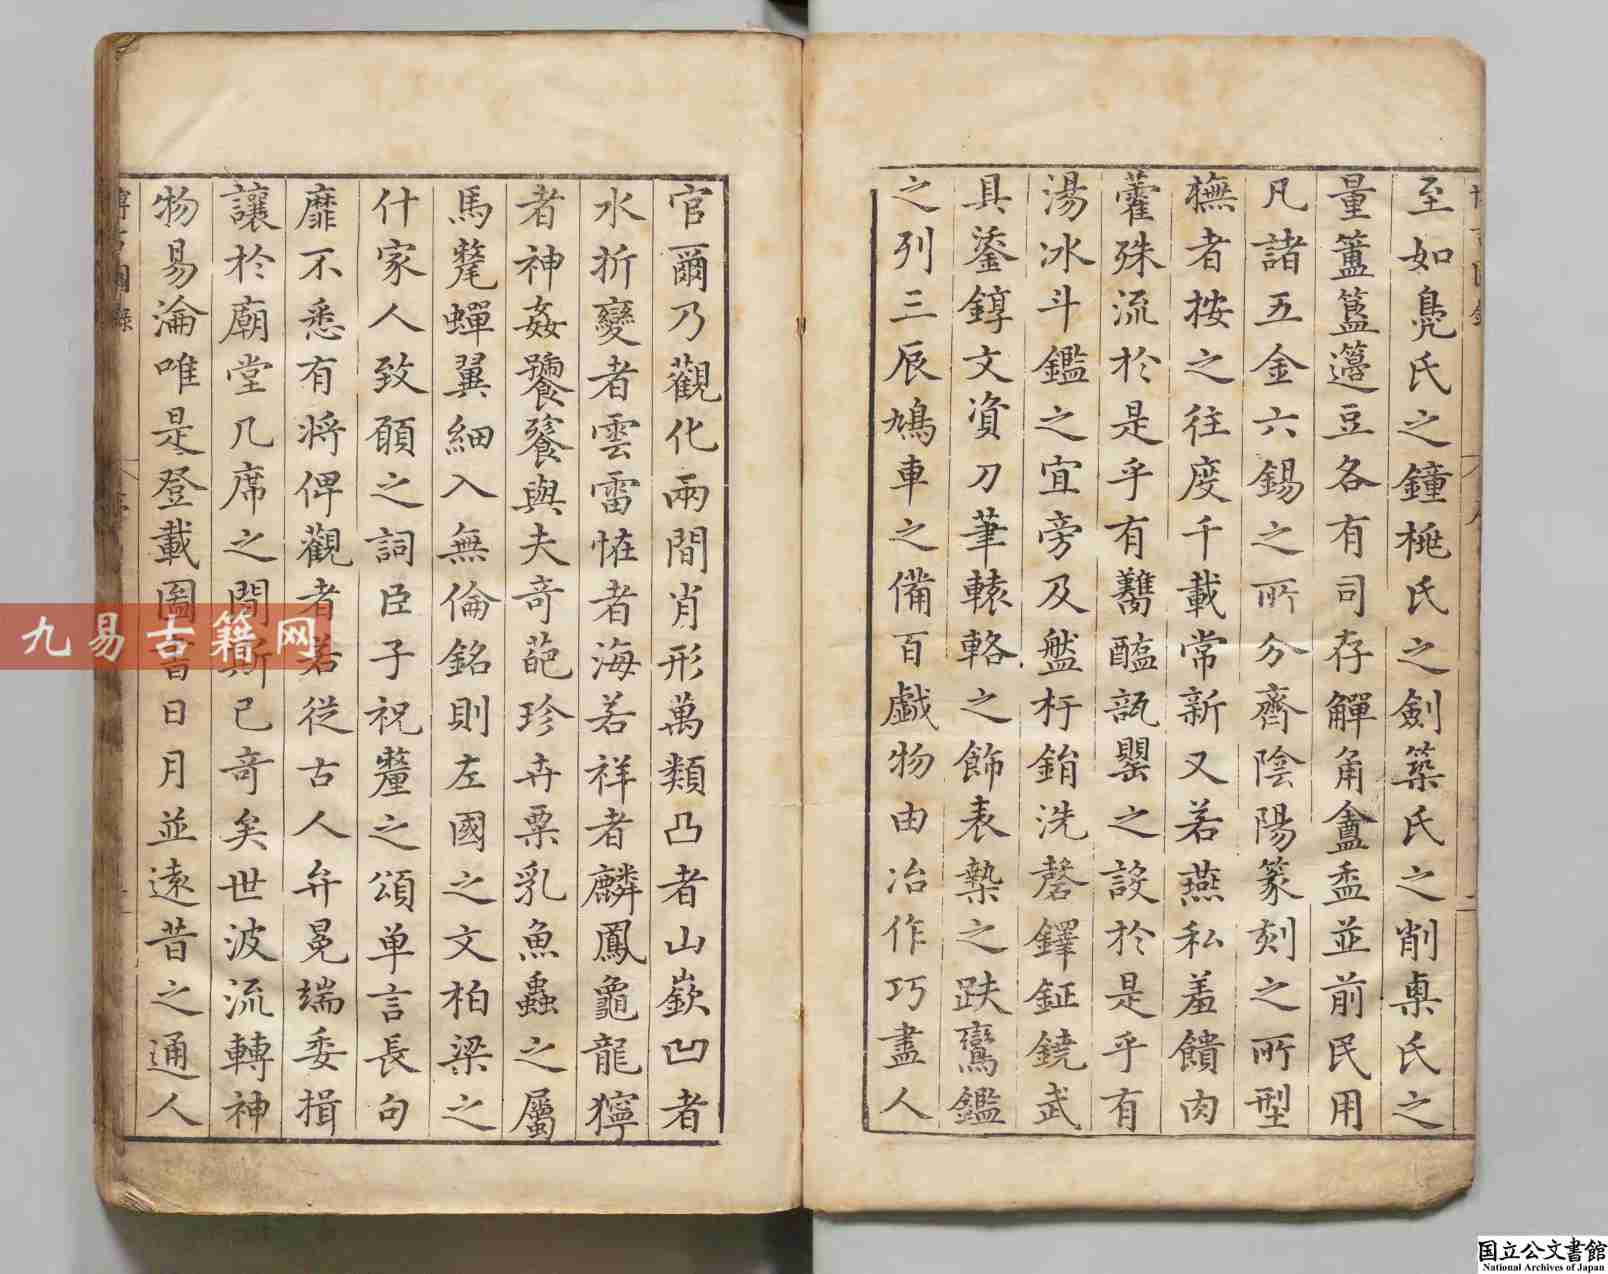 至如鳧氏之鐘桃氏之劍築氏之削㮚氏之
量簠簋籩豆各有司存觶角盦盉並前民用
凡諸五金六錫之所分齊陰陽篆刻之所型
橅者按之往度千載常新又若燕私羞饋肉
藿殊流於是乎有鑴醖瓿罌之設於是乎有
湯冰斗鑑之宜旁及盤杅鋗洗磬鐸鉦鐃武
具鋈錞文資刀筆轅輅之飾表槷之趺鸞鑑
之列三辰鳩車之備百戲物由冶作巧盡人
官爾乃觀化兩間肖形萬類凸者山嶔凹者
水折變者雲雷恠者海若祥者麟鳳龜龍獰
者神姦饕餮與夫奇葩珍卉粟乳魚蟲之屬
馬氂蟬翼細入無倫銘則左國之文柏梁之
什家人致願之詞臣子祝釐之頌单言長句
靡不悉有將俾觀者若從古人弁冕端委揖
讓於廟堂几席之間斯已奇矣世波流轉神
物易淪唯是登載圖書日月並遠昔之通人
九易古籍网
国立公文書館
National Archives of Japan